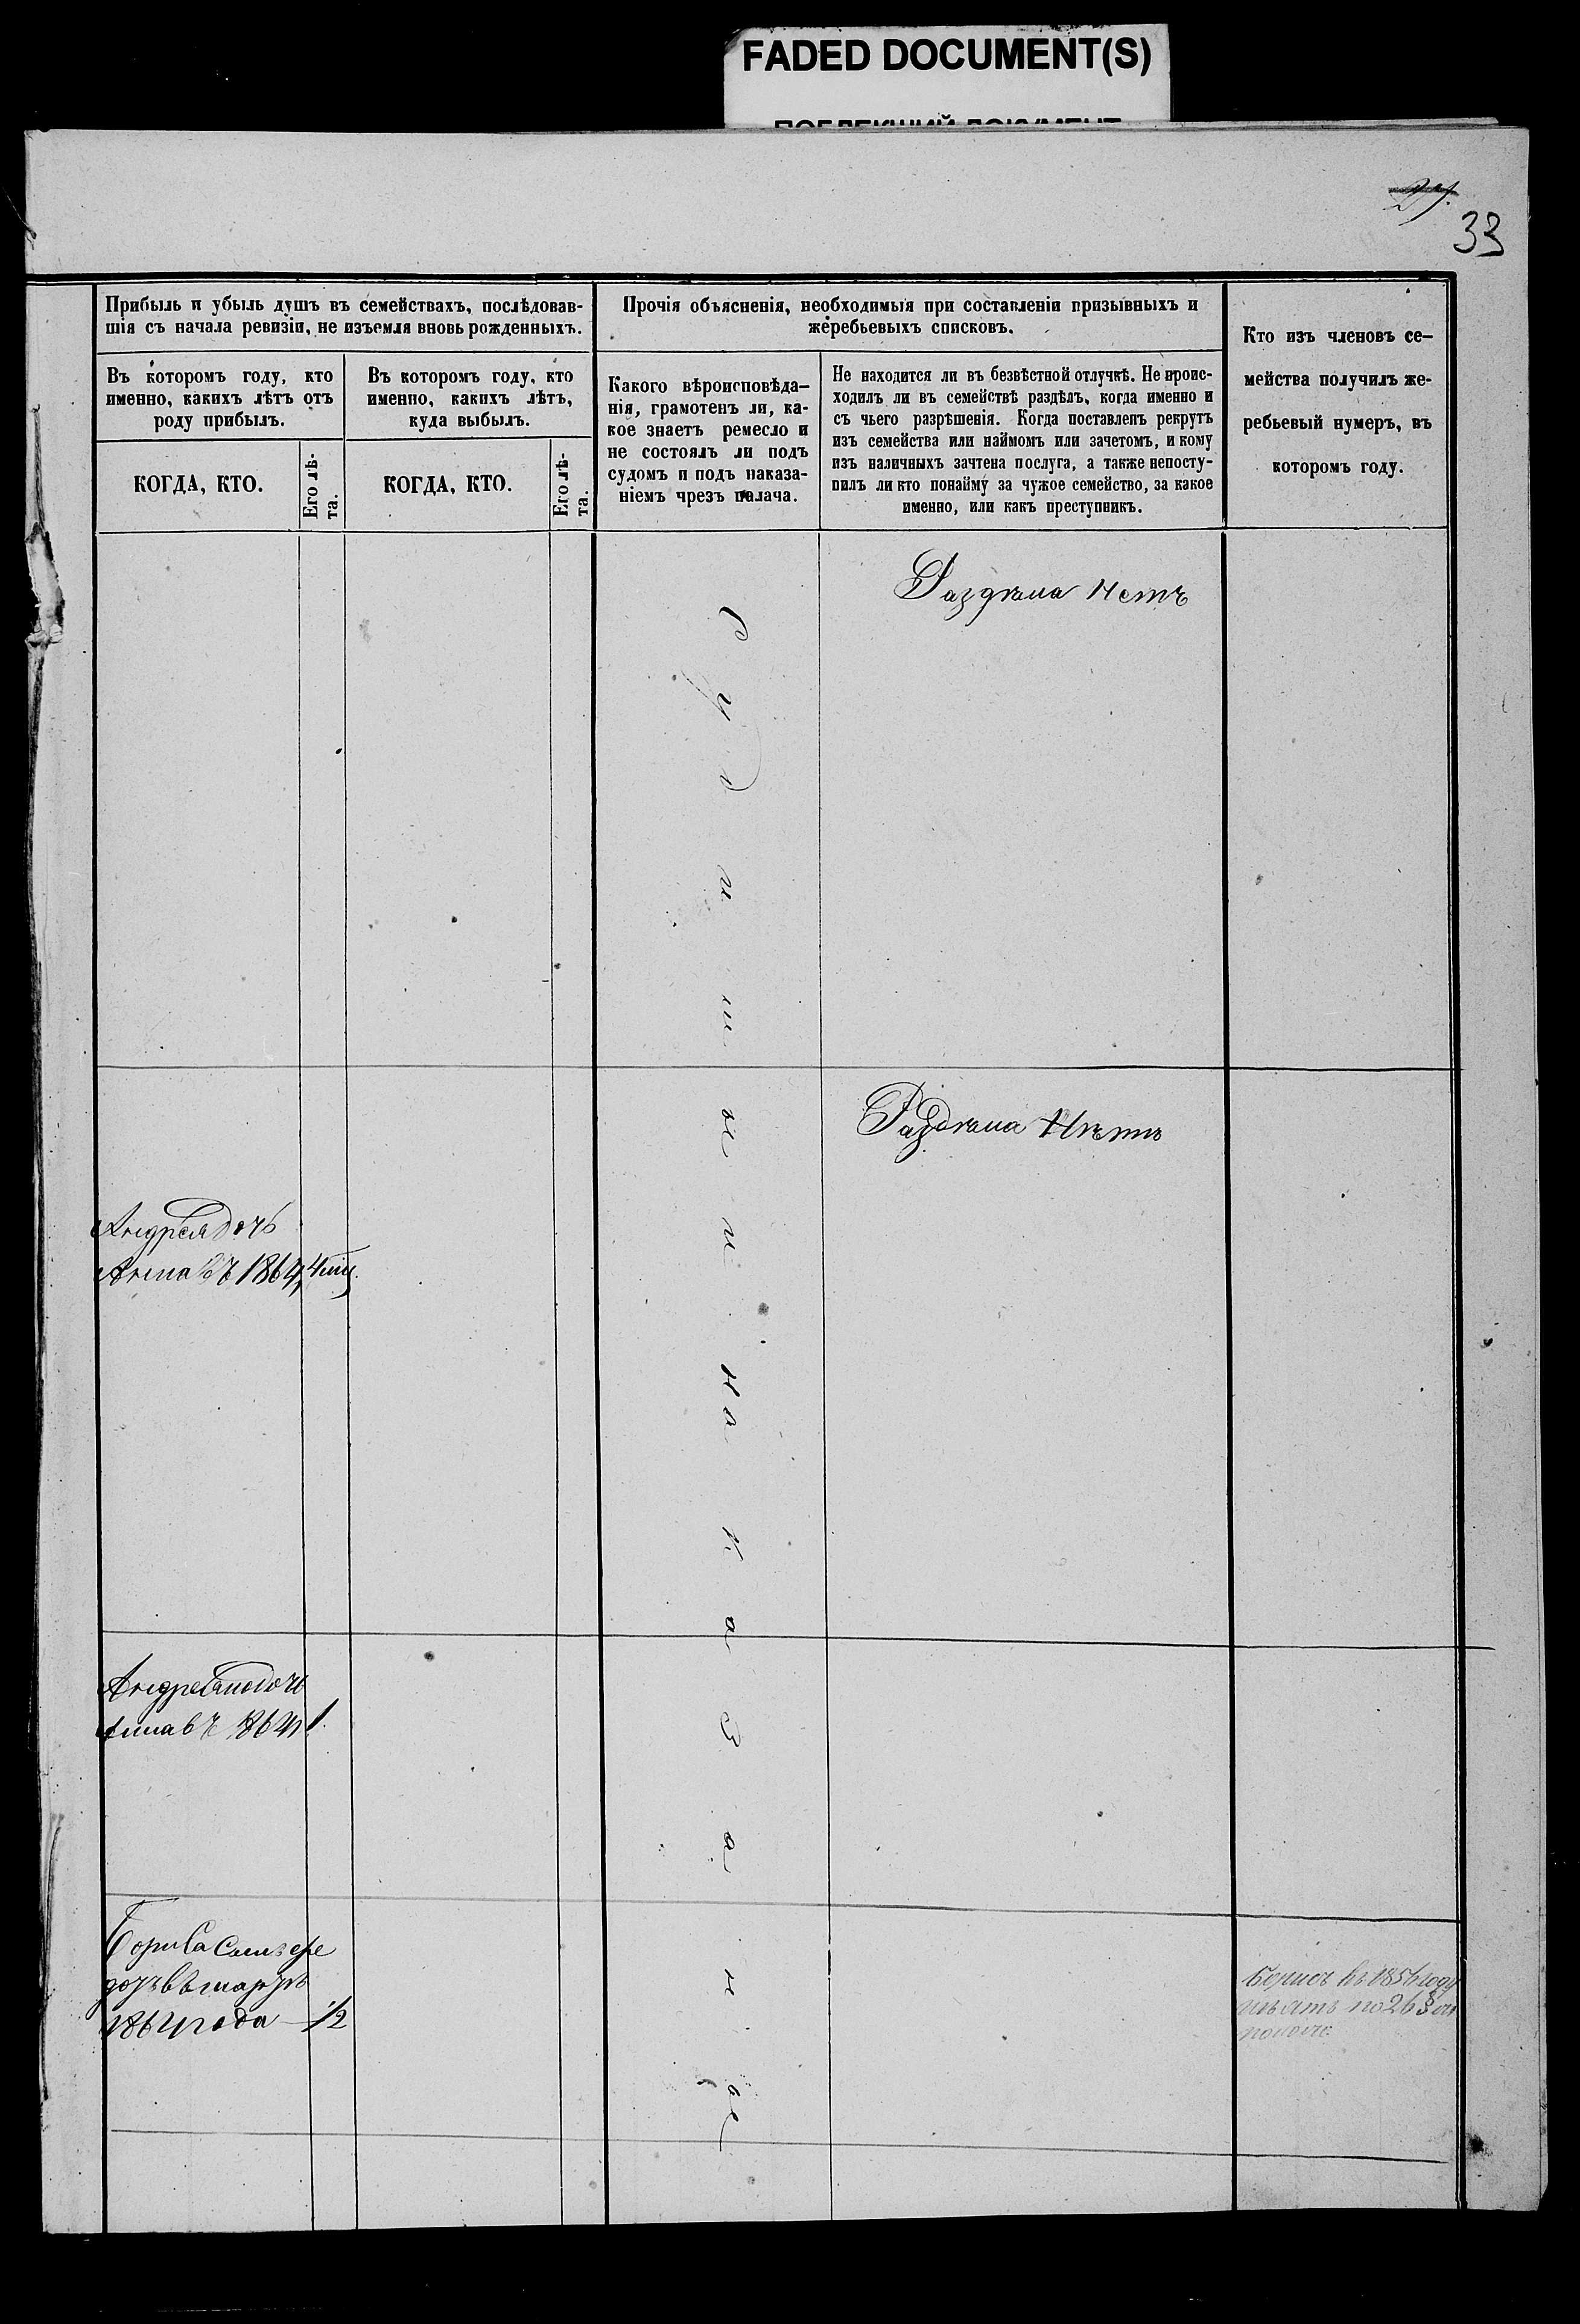 FADED DOCUMENT(S)
ПОБЛЕКШИЙ ДОКУМЕНТ
27.
33
Прибыль и убыль душъ въ семействахъ, послѣдовав-
шія съ начала ревизіи, не изъемля вновь рожденныхъ.
Въ которомъ году, кто
именно, какихъ лѣтъ отъ
роду прибылъ.
КОГДА, КТО.
Его лѣ-
та.
Въ которомъ году, кто
именно, какихъ лѣтъ,
куда выбылъ.
КОГДА, КТО.
Его лѣ-
та.
Прочія объясненія, необходимыя при составленіи призывныхъ и
жеребьевыхъ списковъ.
Какого вѣроисповѣда-
нія, грамотенъ ли, ка-
кое знаетъ ремесло и
не состоялъ ли подъ
судомъ и подъ наказа-
ніемъ чрезъ палача.
Не находится ли въ безвѣстной отлучкѣ. Не проис-
ходилъ ли въ семействѣ раздѣлъ, когда именно и
съ чьего разрѣшенія. Когда поставленъ рекрутъ
изъ семейства или наймомъ или зачетомъ, и кому
изъ наличныхъ зачтена послуга, а также непосту-
пилъ ли кто понайму за чужое семейство, за какое
именно, или какъ преступникъ.
Кто изъ членовъ се-
мейства получилъ же-
ребьевый нумеръ, въ
которомъ году.
Раздѣла Нетъ
Раздѣла Нѣтъ
Андрея дочь
Анна въ 1864
Андреяно дочь
1864 1.
Бориса
въ мартѣ
1864 года — 1/2
Борисъ въ 1856 году